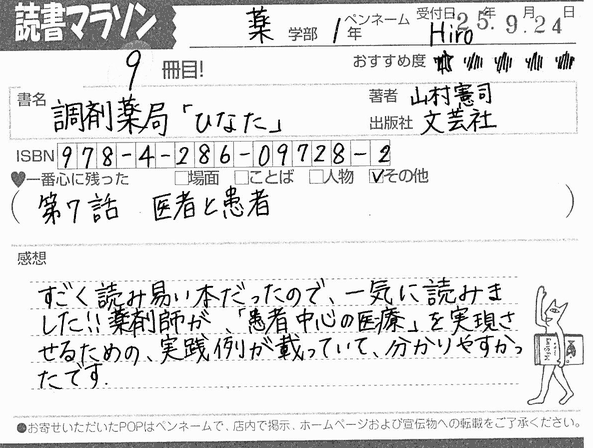 読書マラソン
薬 学部 1年 ペンネーム Hiro 受付日 25年 9月 24日
9 冊目!
おすすめ度
書名 調剤薬局「ひなた」
著者 山村憲司
出版社 文芸社
ISBN 978-4-286-09728-2
♥一番心に残った □場面 □ことば □人物 ☑その他
(第7話 医者と患者)
感想
すごく読み易い本だったので、一気に読みま
した!!薬剤師が、「患者中心の医療」を実現さ
せるための、実践例が載っていて、分かりやすかっ
たです.
●お寄せいただいたPOPはペンネームで、店内で掲示、ホームページおよび宣伝物への転載をご了承ください。